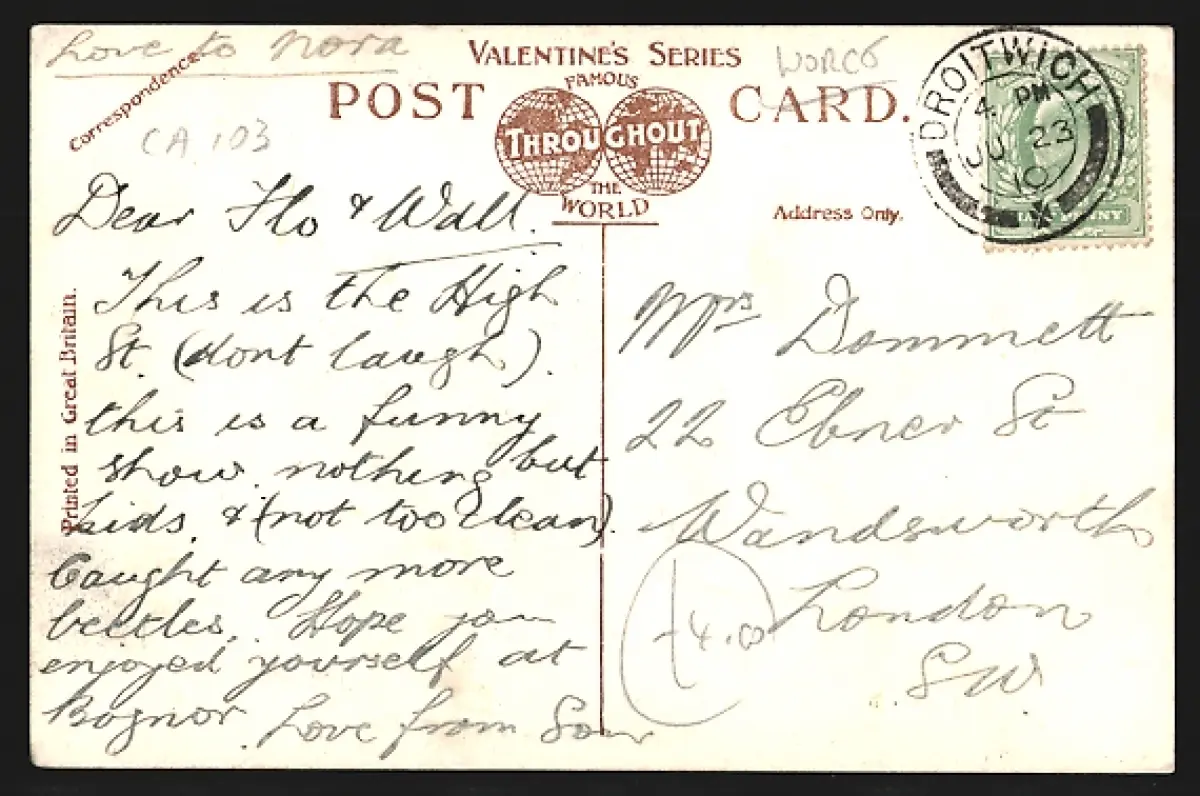 Love to Nora
Correspondence.
CA 103
VALENTINE'S SERIES
FAMOUS
POST CARD.
THROUGHOUT
THE
WORLD
WORCS
DROITWICH
4 PM
JU 23
10
Address Only.
Printed in Great Britain.
Dear Flo & Wall.
This is the High
St. (dont laugh).
this is a funny
show. nothing but
kids. & (not too clean).
Caught any more
beetles. Hope you
enjoyed yourself at
Bognor. Love from
Mrs Dommett
22 Ebner St
Wandsworth
London
SW
4.00